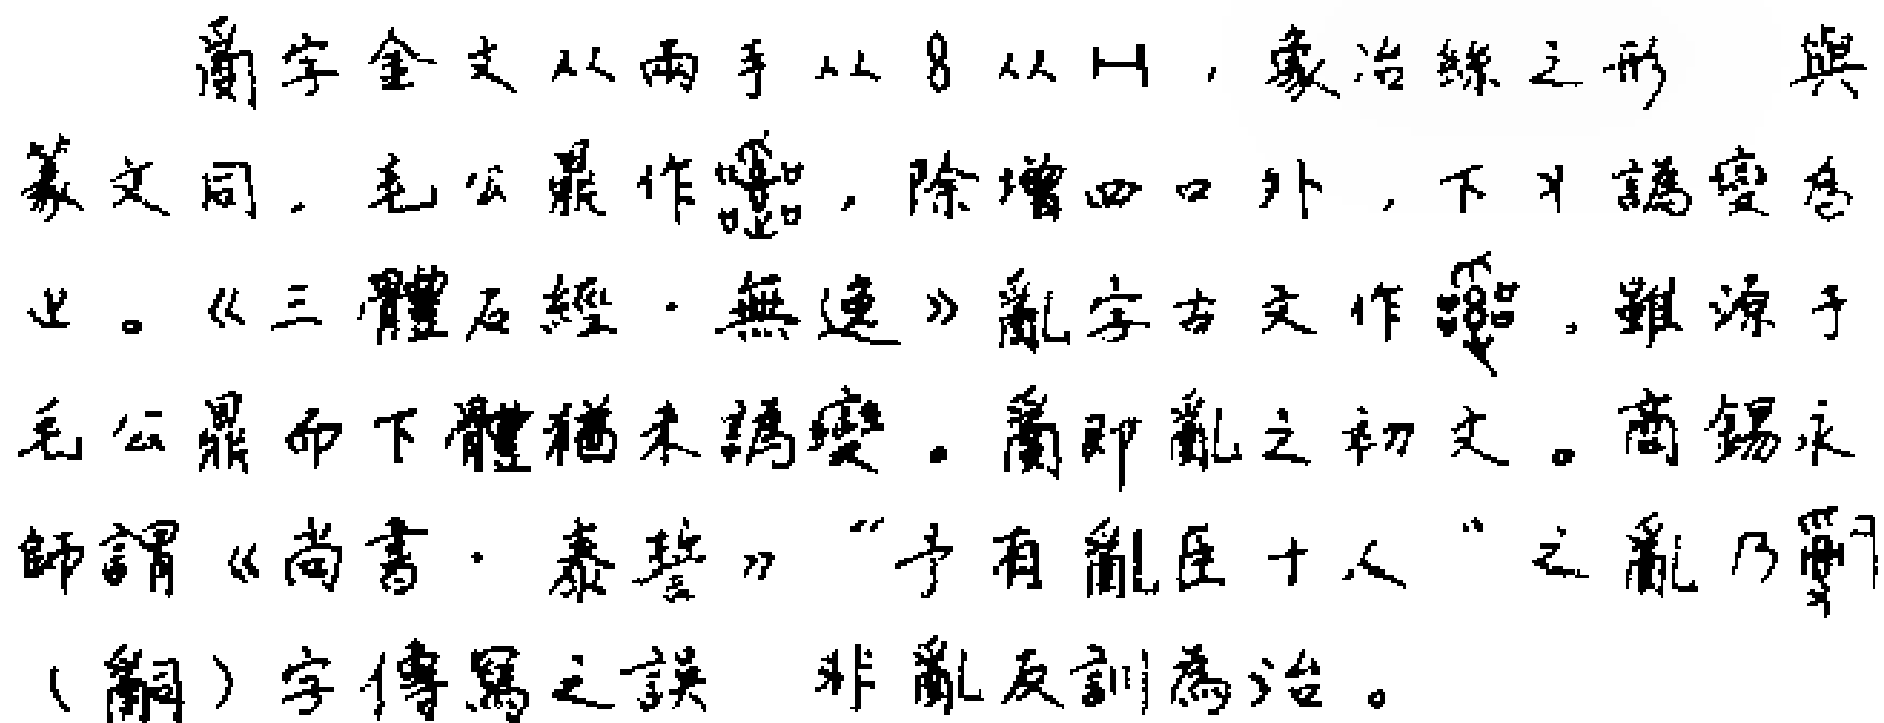 𤔔字金文从兩手从8从H，象治絲之形 與
篆文同。毛公鼎作，除增四口外，下又譌變為
止。《三體石經·無逸》亂字古文作，雖源于
毛公鼎而下體猶未譌變。𤔔即亂之初文。商錫永
師謂《尚書·泰誓》“予有亂臣十人”之亂乃
（𤔲）字傳寫之誤 非亂反訓為治。